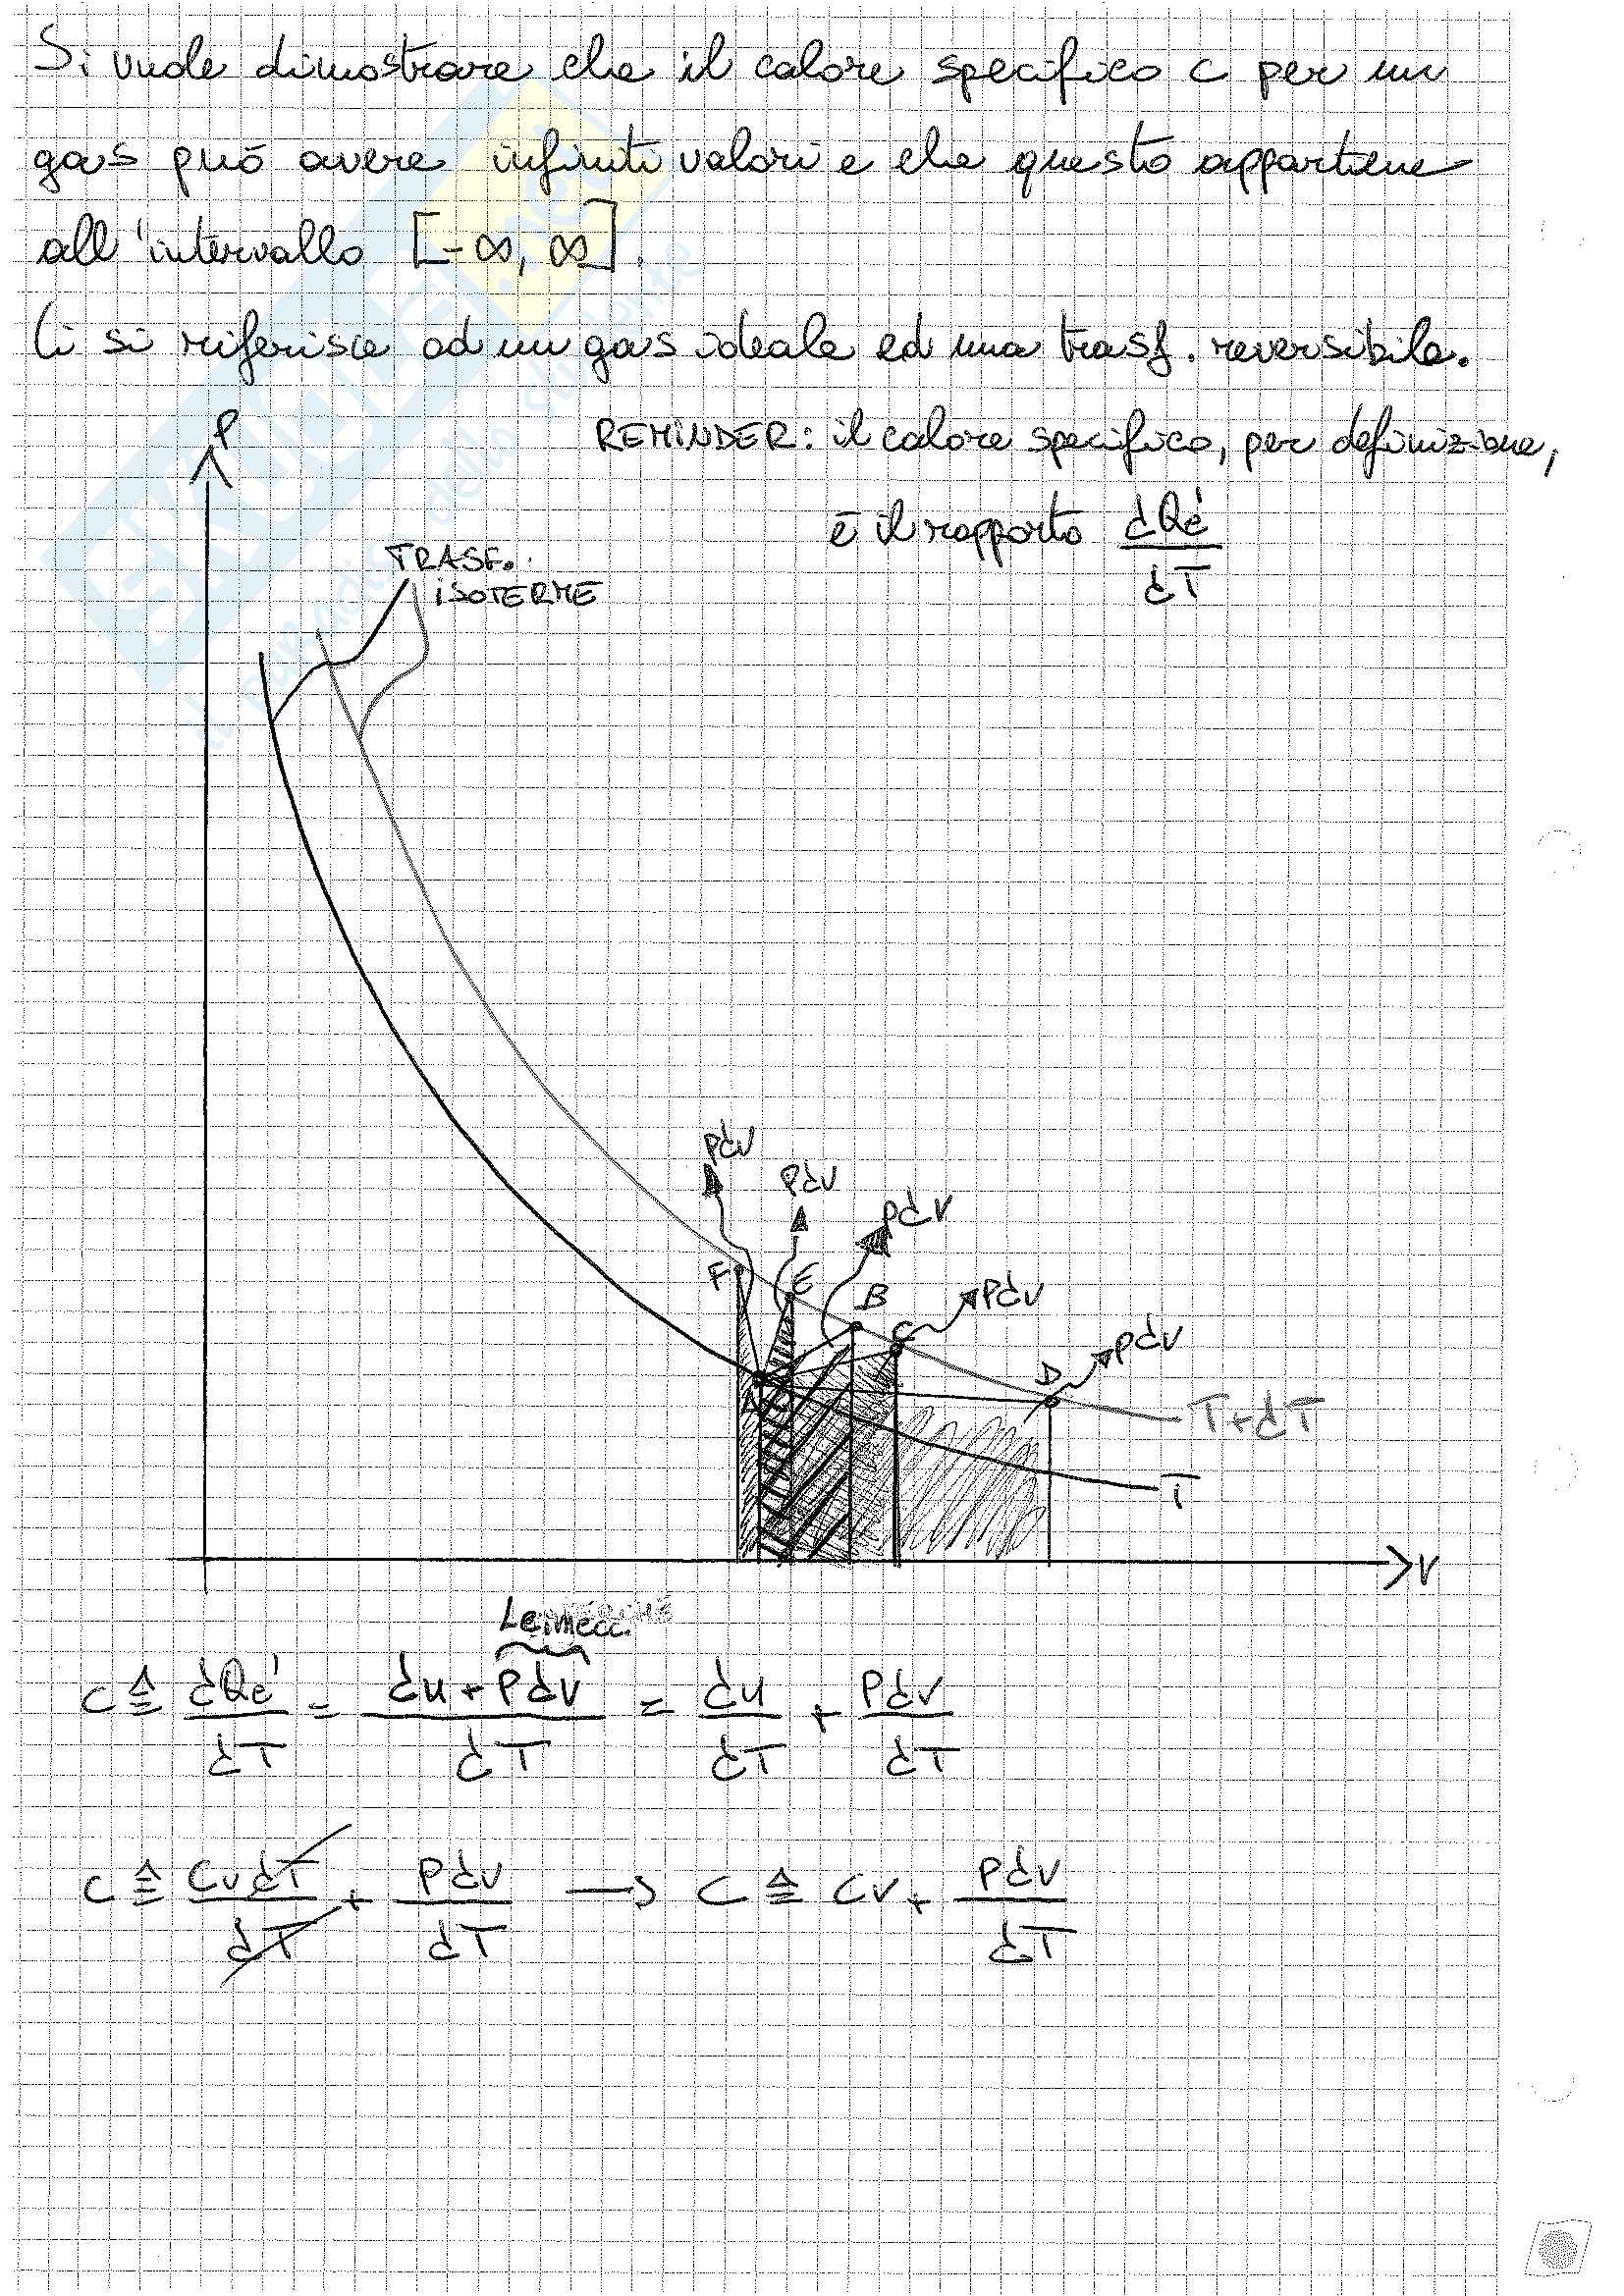 Si vuole dimostrare che il calore specifico c per un
gas può avere infiniti valori e che questo appartiene
all'intervallo [-∞, ∞].
Ci si riferisce ad un gas ideale ed una trasf. reversibile.
P
REMINDER: il calore specifico, per definizione,
è il rapporto dQe'/dT
TRASF.
ISOTERME
pdv
pdv
pdv
F
E
B
pdv
C
pdv
D
A
T+dT
T
v
Le,mecc.
c ≙ dQe'/dT = (du + pdv)/dT = du/dT + pdv/dT
c ≙ CvdT/dT + pdv/dT → c ≙ cv + pdv/dT